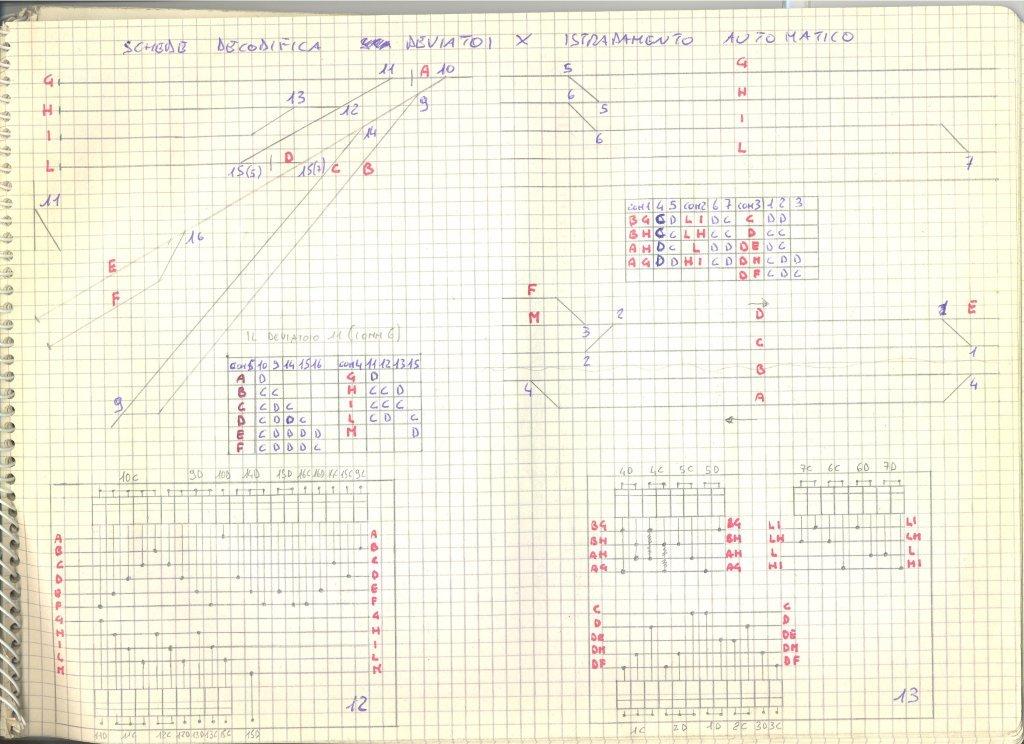 SCHEDE DECODIFICA DEVIATOI X ISTRADAMENTO AUTOMATICO
G 11 A 10 5 G
H 13 12 9 6 5 H
I 14 6 I
L 15(5) D 15(7) C B L 7
11
16
E
F
CON1 4 5 CON2 6 7 CON3 1 2 3
BG C D LI D C C D D
BH C C LH C C D C C
AH D C L D D DE D C
AG D D HI C D DM C D D
DF C D C
F 2 D 1 E
M 3 C 1
2 B
4 A 4
IL DEVIATOIO 11 (COM 6)
9
CON5 10 9 14 15 16 CON4 11 12 13 15
A D G D
B C C H C C D
C C D C I C C C
D C D D C L C D C
E C D D D D M D
F C D D D C
10C 9D 10D 14D 15D 16C 16D 14C 15C 9C
A A
B B
C C
D D
E E
F F
G G
H H
I I
L L
M M
11D 11C 12C 12D 13D 13C 15C 15D
12
4D 4C 5C 5D 7C 6C 6D 7D
BG BG LI LI
BH BH LH LH
AH AH L L
AG AG HI HI
C C
D D
DE DE
DM DM
DF DF
1C 2D 1D 2C 3D 3C
13